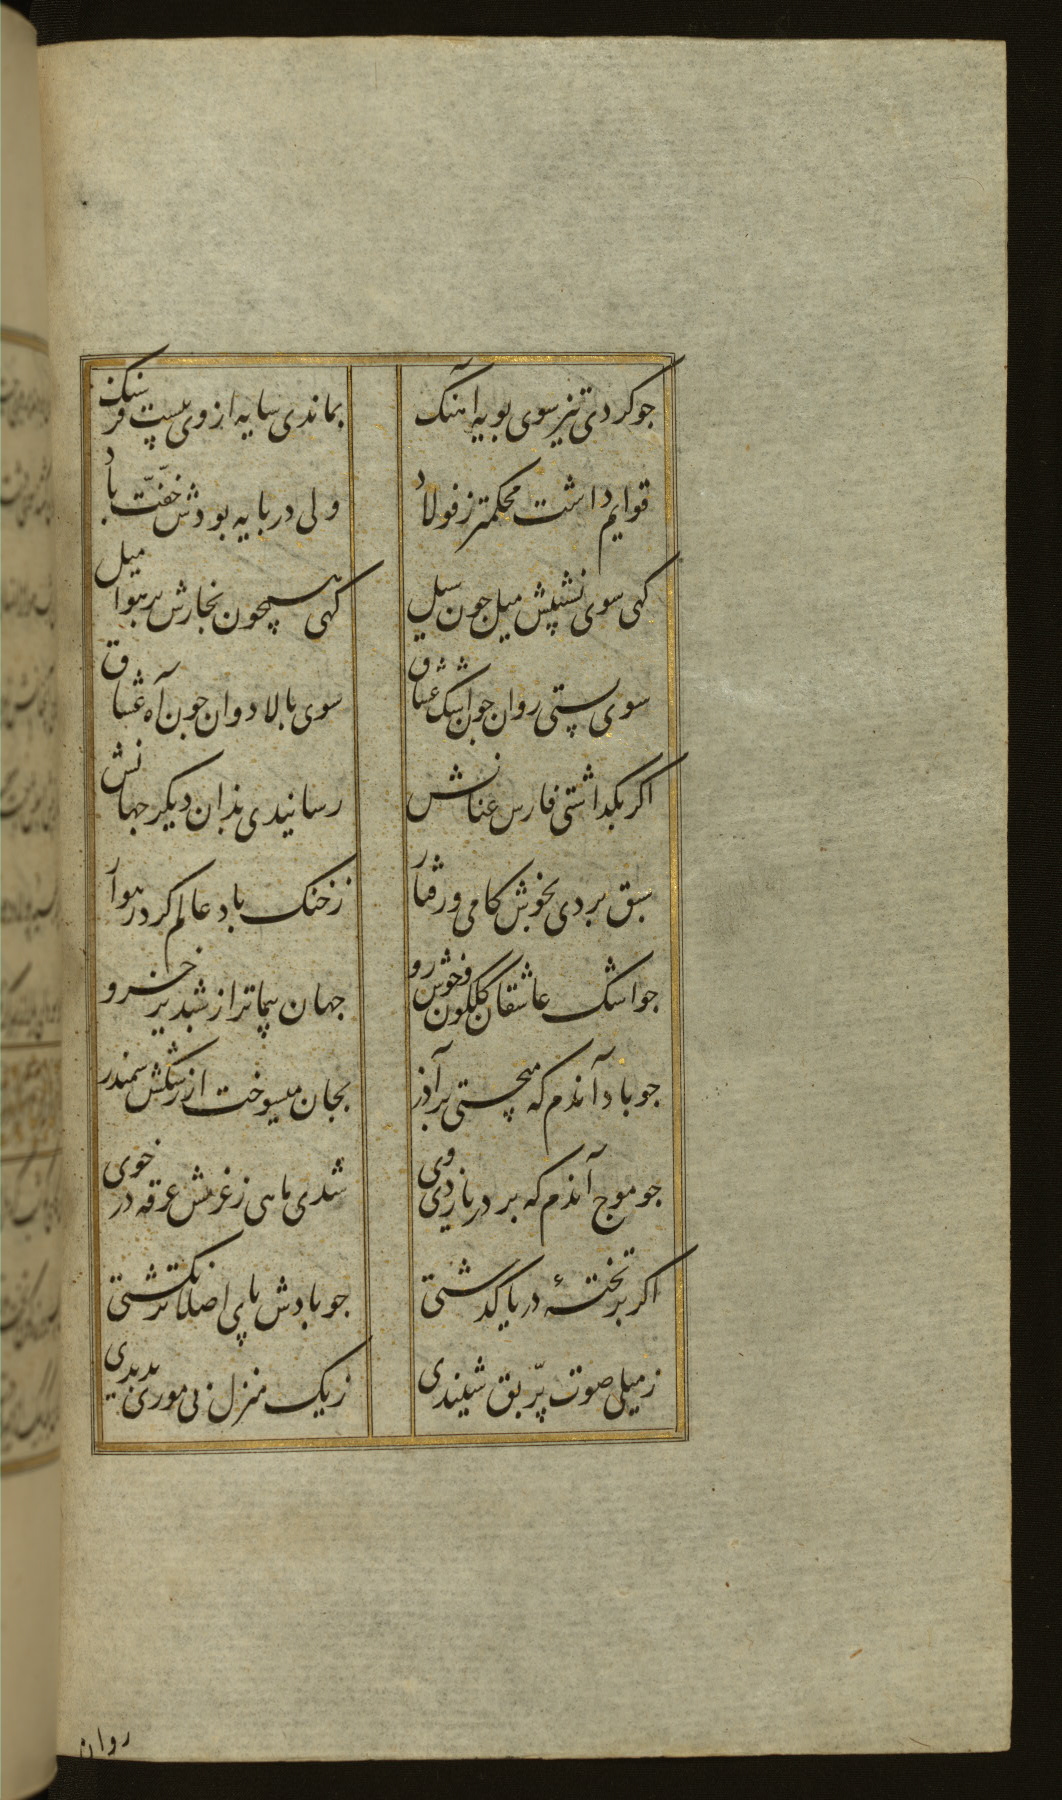 جو کردی تیز سوی پویه آهنک
بماندی سایه از وی بیست فرسنک
قوایم داشت محکمتر ز فولاد
ولی در پایه بودش خفّت باد
کهی سوی نشیبش میل جون سیل
کهی همچون بخارش بر هوا میل
سوی پستی روان جون اشک عشاق
سوی بالا دوان جون آه عشاق
اکر بکداشتی فارس عنانش
رسانیدی بدان دیکر جهانش
سبق بردی بخوش کامی و رفتار
ز خنک باد عالم کرد رهوار
جو اشک عاشقان کلکون و خوش رو
جهان پیماتر از شبدیز خسرو
جو باد آندم که میجستی بر آذر
بجان میسوخت از رشکش سمندر
جو موج آندم که بر دریا زدی وی
شدی ماهی ز غرمش غرقه در خوی
اکر بر تختهٔ دریا کدشتی
جو بادش پای اصلا تر نکشتی
ز میلی صوت پرّ بق شنیدی
ز یک منزل پی موری بدیدی
روان